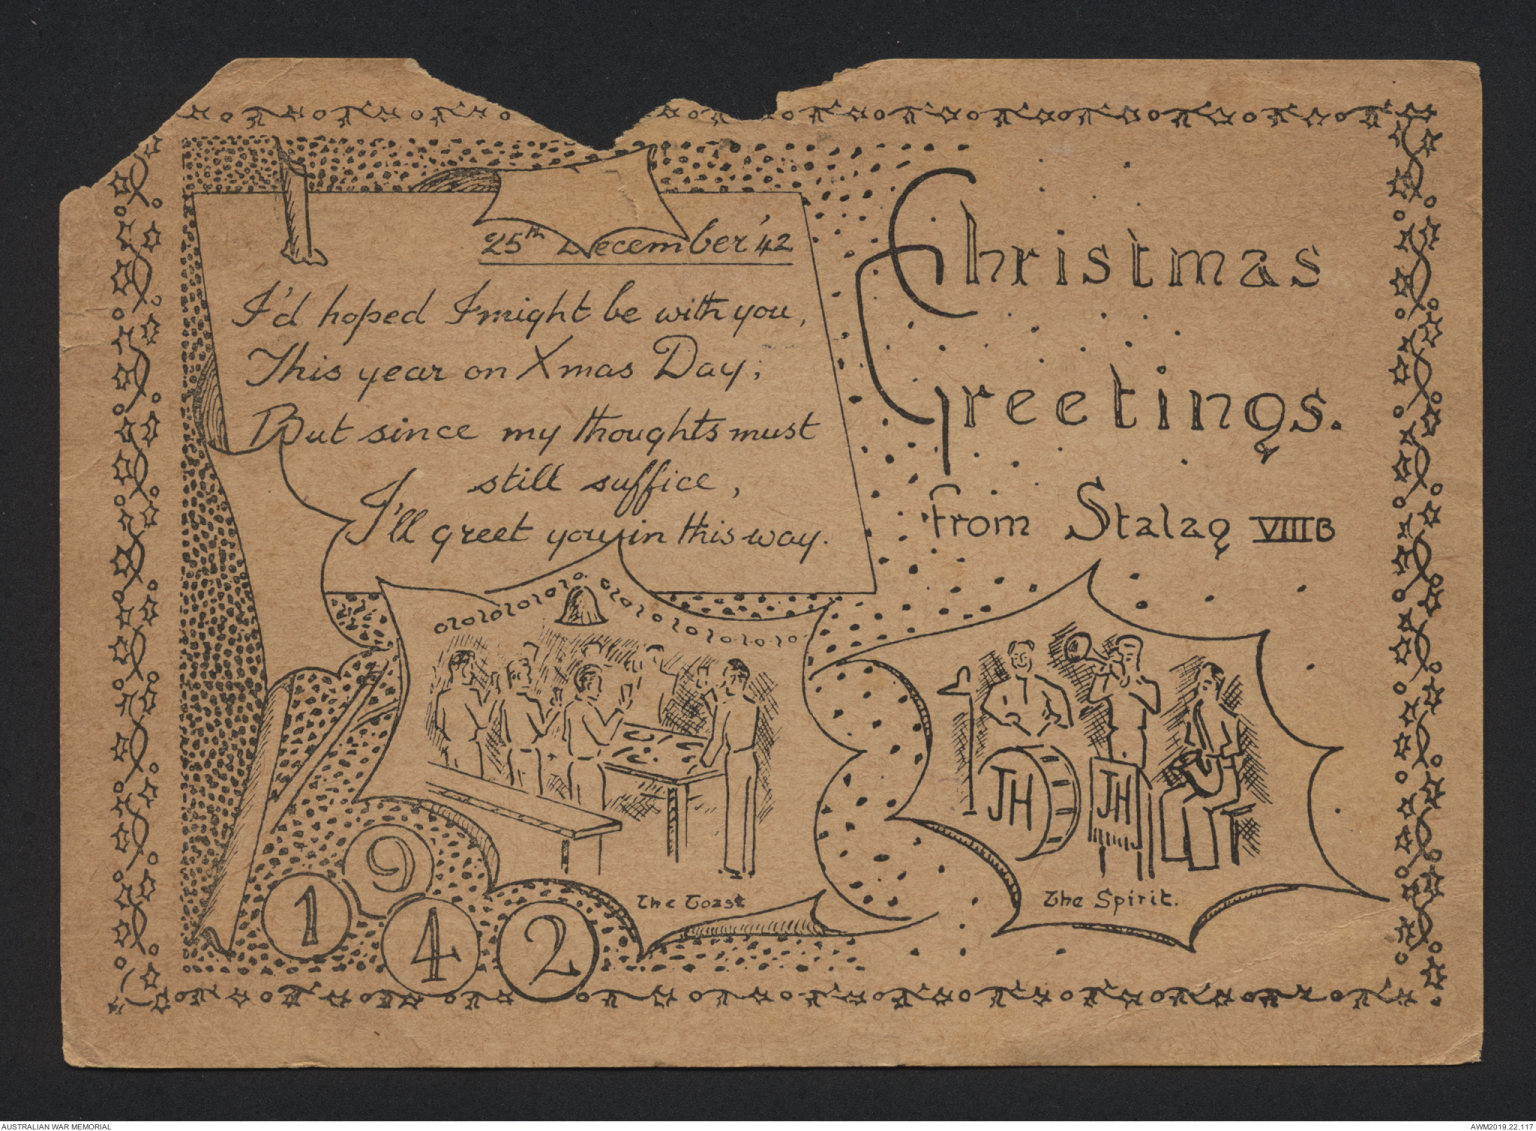 25th December '42
I'd hoped I might be with you,
This year on Xmas Day;
But since my thoughts must
still suffice,
I'll greet you in this way.
Christmas
Greetings.
from Stalag VIIIB
JH
JH
The Toast
The Spirit.
1942
AUSTRALIAN WAR MEMORIAL
AWM2019.22.117